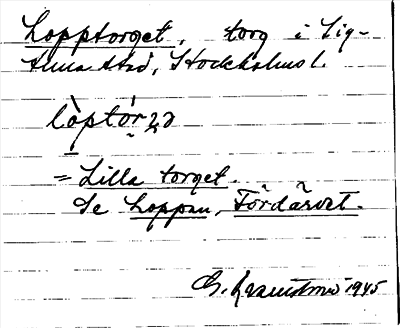 Lopptorget, torg i Sig-
tuna stad, Stockholms l.
lòptór̰ʒə
= Lilla torget.
Se Loppan, Fördärvet.
1945